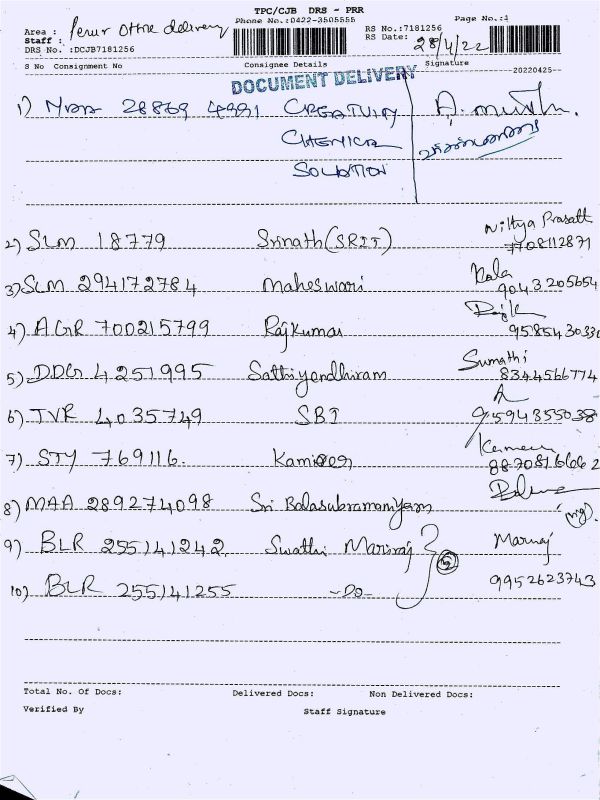 TPC/CJB DRS - PRR
Phone No.:0422-3505555 Page No.:1
Area : Perur Office delivery RS No.:7181256
Staff : RS Date: 28/4/22
DRS No. :DCJB7181256
S No Consignment No Consignee Details Signature 20220425--
DOCUMENT DELIVERY
1) MAA 28869 4991 CREATIVITY
CHEMICAL
SOLUTION
2) SLM 18779 Srinath (SRIT) Nithya Prasath
7708112871
3) SLM 294172784 Maheswari Kala
9043205654
4) AGR 700215799 Rajkumar
958543033
5) DDG 4251995 Sathiyendhiram Sumathi
8344566774
6) TVR 4035749 SBI 9594355038
7) STY 769116.
887081666 2
8) MAA 289274098 Sri Balasubramaniyam
(mg)
9) BLR 255141242 Swathi Mariraj Marriaj
10) BLR 255141255 -Do- 9952623743
Total No. Of Docs: Delivered Docs: Non Delivered Docs:
Verified By Staff Signature